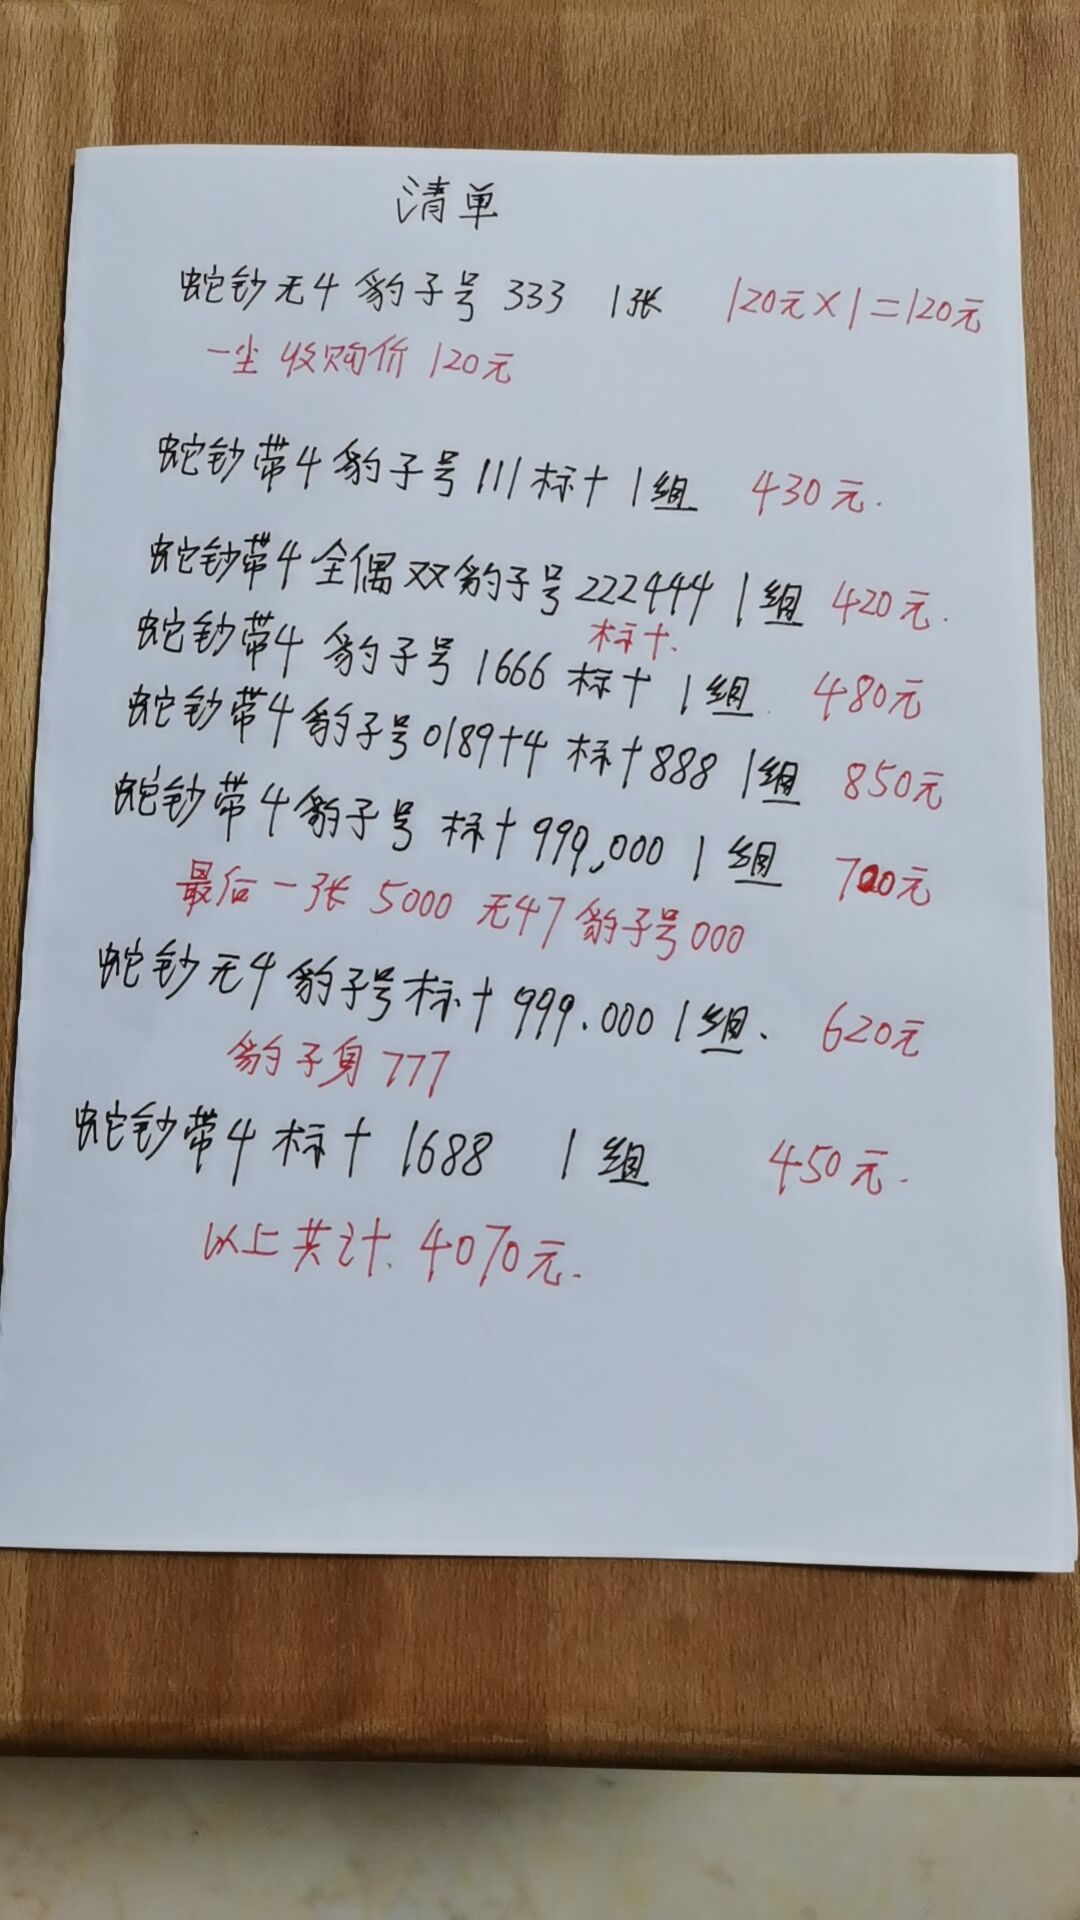 清单
蛇钞无4豹子号333 1张 120元×1=120元
一尘收购价120元
蛇钞带4豹子号111标十1组 430元.
蛇钞带4全偶双豹子号222444 1组 420元.
标十.
蛇钞带4豹子号1666标十1组 480元
蛇钞带4豹子号0189+4标十888 1组 850元
蛇钞带4豹子号标十999,000 1组 700元
最后一张5000无47豹子号000
蛇钞无4豹子号标十999.000 1组. 620元
豹子身777
蛇钞带4标十1688 1组 450元.
以上共计.4070元.